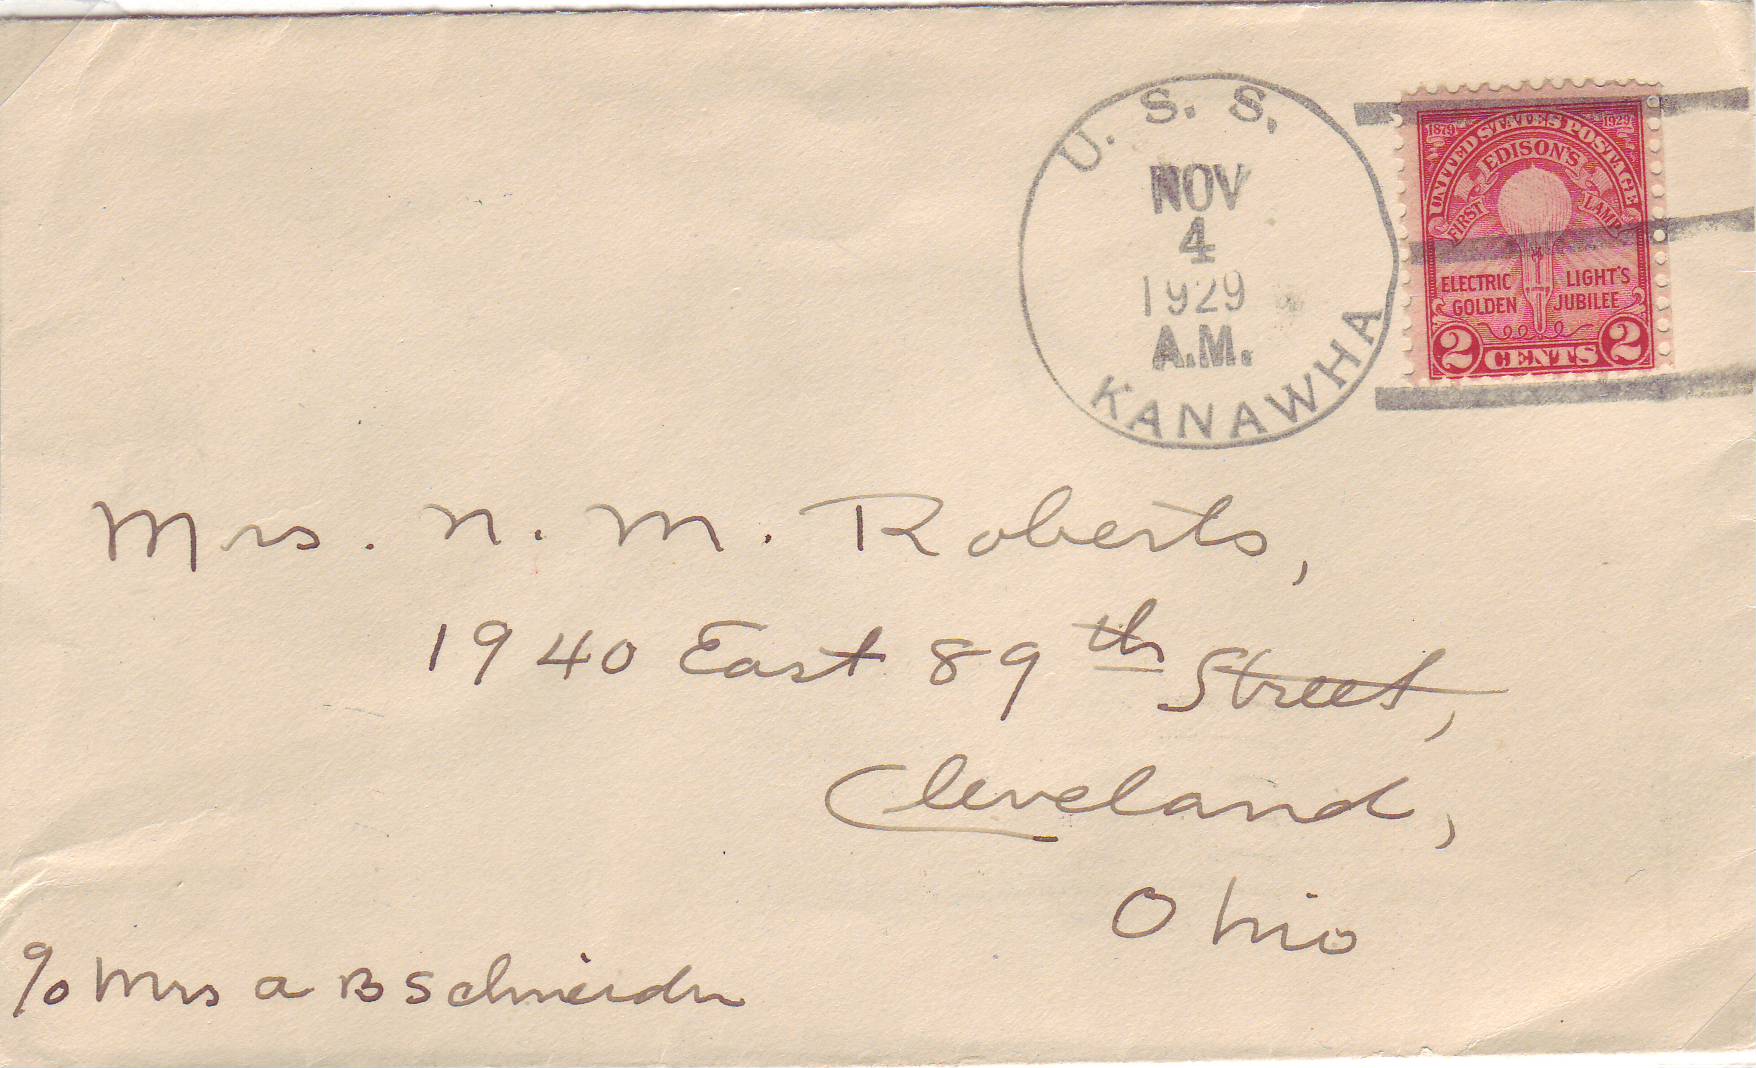 U. S. S.
NOV
4
1929
A.M.
KANAWHA
1879 1929
UNITED STATES POSTAGE
EDISON'S
FIRST LAMP
ELECTRIC LIGHT'S
GOLDEN JUBILEE
2 CENTS 2
Mrs. N. M. Roberts,
1940 East 89th Street,
Cleveland,
Ohio
c/o Mrs A B Schneider